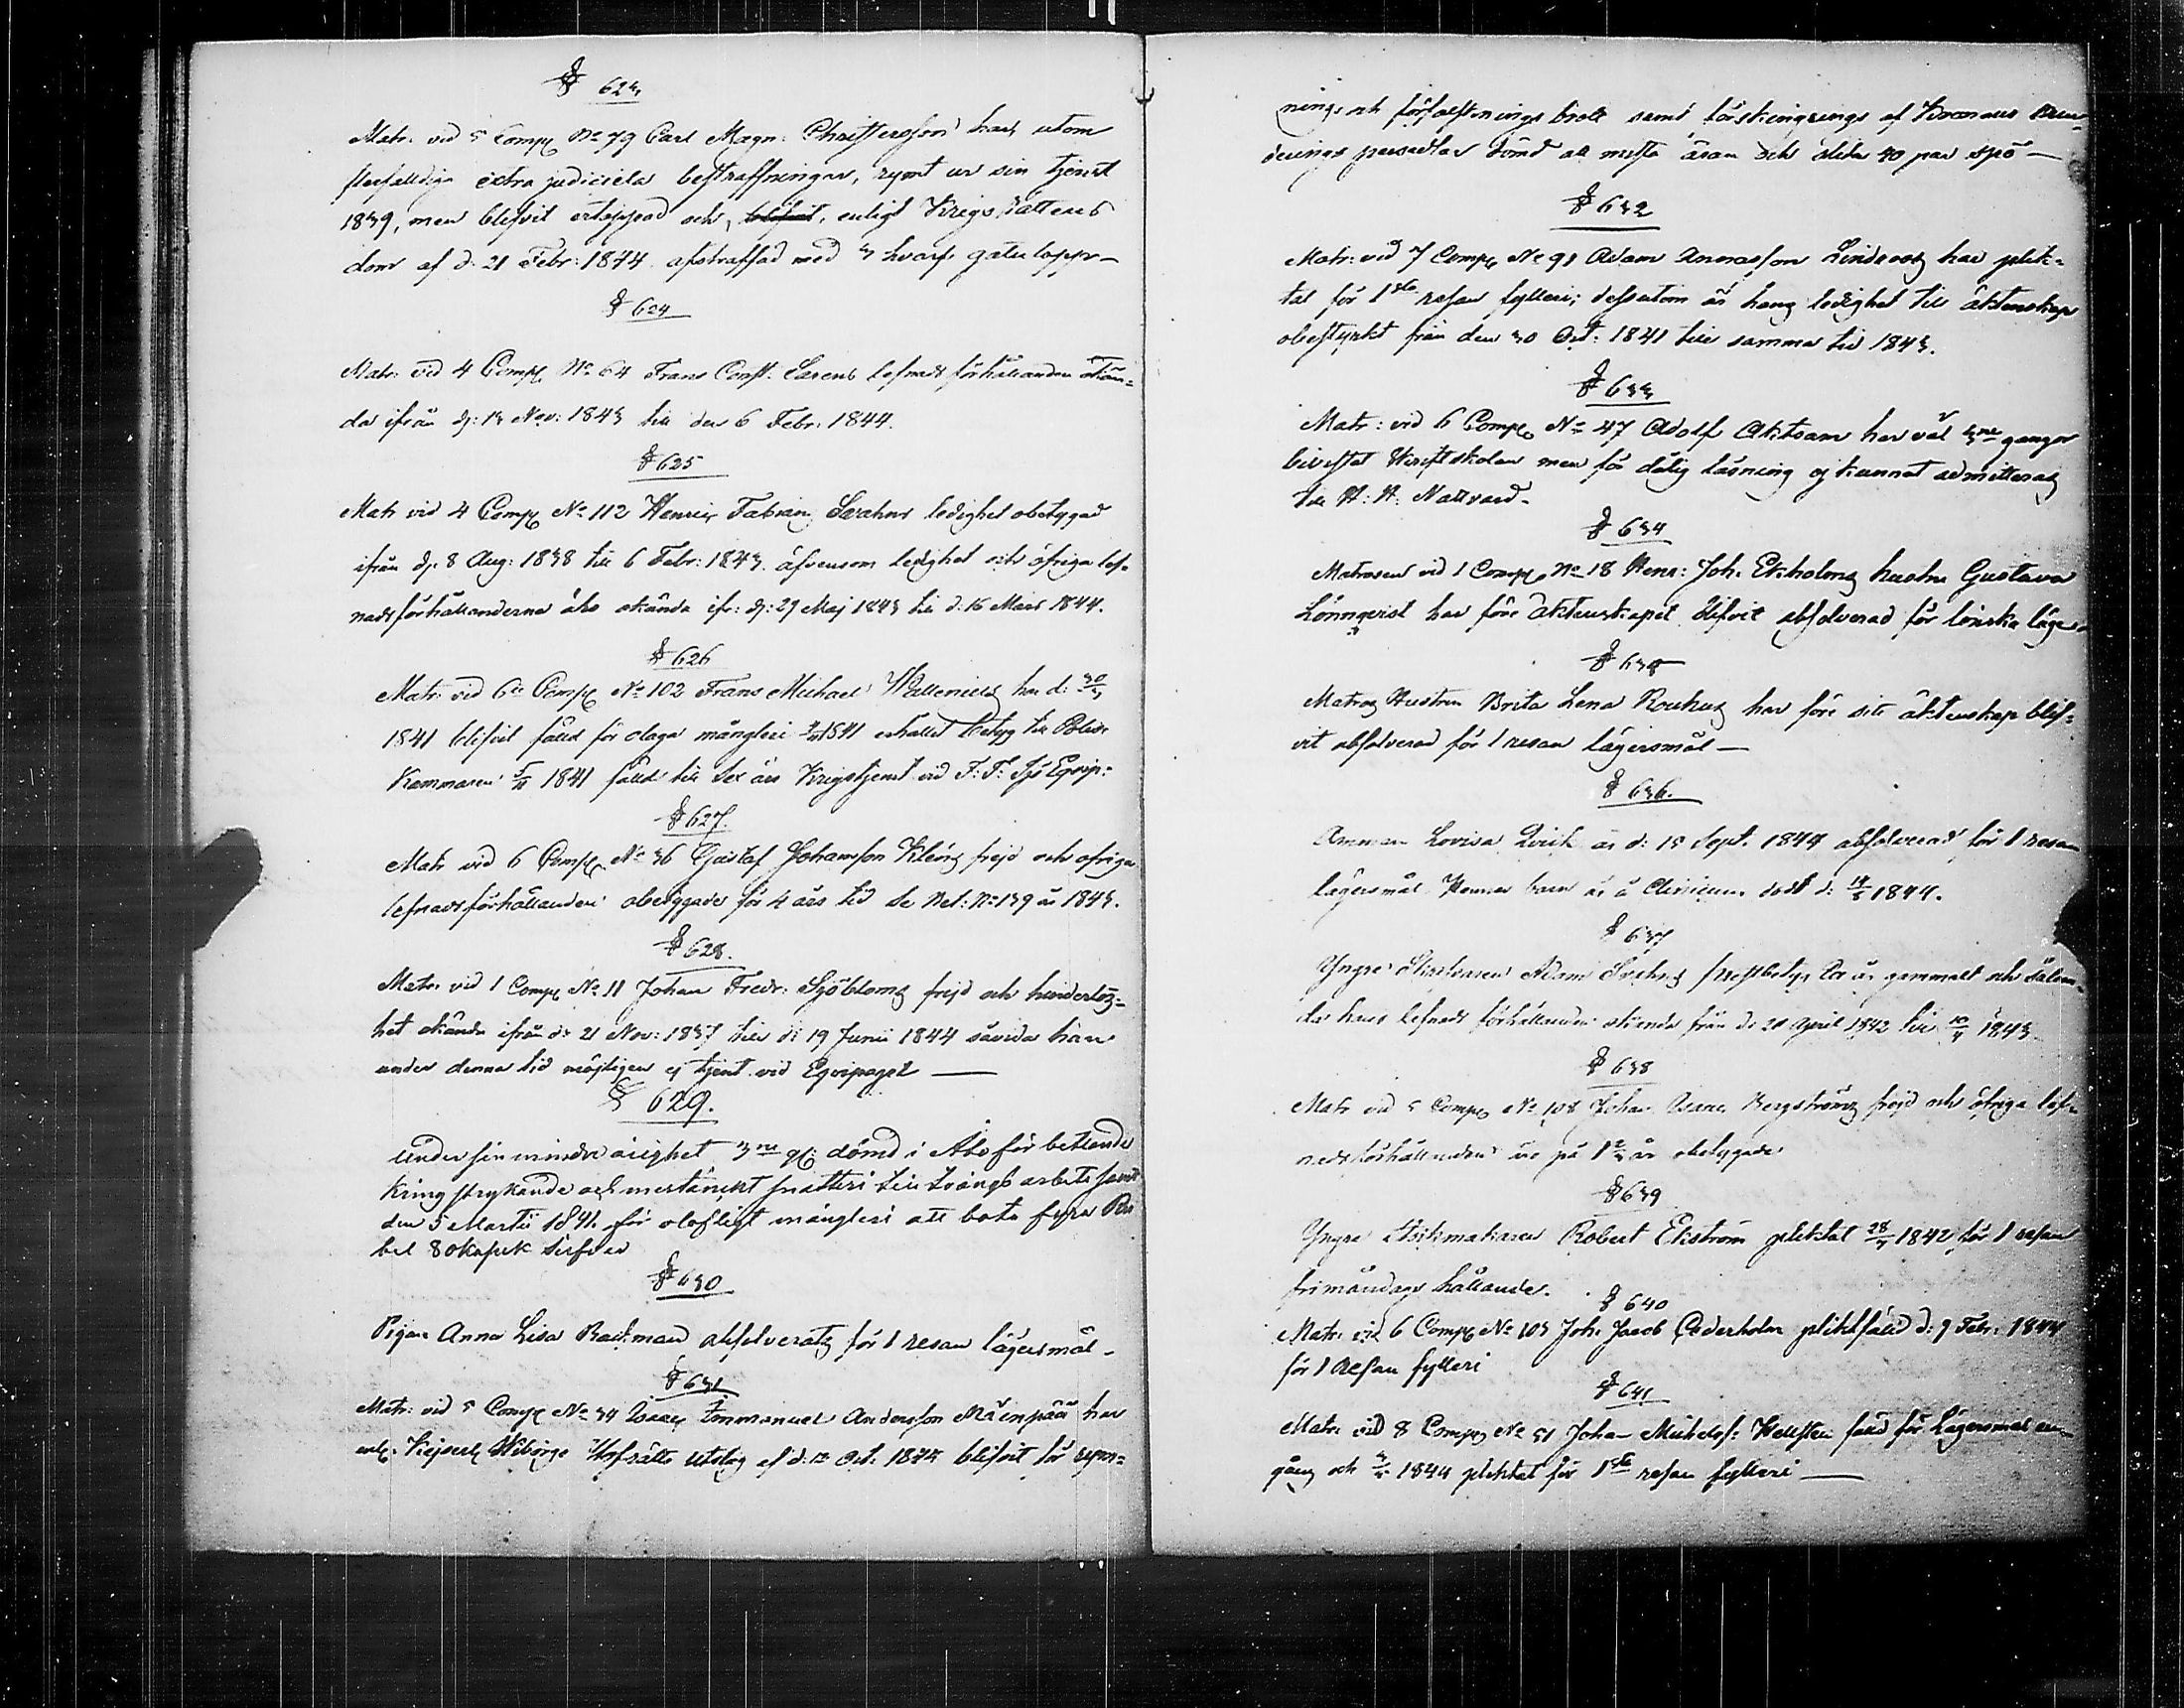 § 623
Matr. vid 5 Comp: No 79 Carl Magn: Christersson har, utom
flerfalldiga extra judiciela bestraffningar, rymt ur sin tjenst
1839, men blefvit ertappad och, blifvit, enligt Krigs rättens
dom af d. 21 Febr: 1844 afstraffad med 3 hvarf gatulopp
§ 624
Matr. vid 4 Comp: No 64 Frans Const. Sarens lefnads förhållanden okän-
da ifrån d: 13 Nov: 1843 till den 6 Febr. 1844.
§ 625
Matr vid 4 Comp No 112 Henric Fabian Svahns ledighet obetygad
ifrån d. 8 Aug: 1838 till 6 Febr: 1843. äfvensom ledighet och öfriga lef-
nadsförhållanderna äro okända ifr: d: 29 Maj 1843 till d: 16 Mars 1844.
§ 626
Matr. vid 6te Comp No 102 Frans Michael Wallenius har d: 30/3
1841 blifvit fälld för olaga mångleri 1841 erhållit betyg till Polis
Kammaren 1841 fälld till sex års Krigstjenst vid F: F: Sjö Eqvip:
§ 627.
Matr vid 6 Comp No 36 Gustaf Johansson Kléens frejd och öfriga
lefnadsförhållanden obetyggade för 4 års tid se Not: No 139 år 1843.
§ 628.
Matr. vid 1 Comp No 11 Johan Fredr: Sjöbloms frejd och hinderlös-
het okända ifrån d: 21 Nov: 1837 till d: 19 Junii 1844 såvida han
under denna tid möjligen ej tjent vid Eqvipaget —
§ 629.
under sin minderårighet 3ne gr dömd i Åbo för bettlande
kring strykande och snatteri till tvångs arbete samt
den 5 Martii 1841 för olofligt mångleri att böta fyra Ru
bel 80 kopek silfver
§ 630
Pigan Anna Lisa Backman absolverats för 1 resan lägersmål -
§ 631
Matr. vid 5 Comp No 34 Isaac Emmanuel Andersson Mäenpää har
enl. Kejserl Wiborgs Hofrätts utslag af d. 12 Oct. 1844 blifvit för rym-
nings och förfalsknings brott samt förskingrings af Kronans Mun-
derings persedlar dömd att mista äran och slita 40 par spö —
§ 632
Matr: vid 7 Comp No 91 Adam Annasson Lindroos har plik-
tat för 1sta resan fylleri; dessutom är hans ledighet till äktenskap
obestyrkt från den 30 Oct: 1841 till samma tid 1843.
§ 633
Matr: vid 6 Comp No 47 Adolf Aktsam har väl 3ne gånger
bivistat Skriftskolan men för dålig läsning ej kunnat admitteras
till H: H: Nattvard.
§ 634
Matrosen vid 1 Comp No 18 Henr: Joh. Ekholms hustru Gustava
Lönnqvist har före äktenskapet blifvit absolverad för lönska läge
§ 635
Matros Hustrun Brita Lena Roukus har före sitt äktenskap blif-
vit absolverad för 1 resan lägersmål —
§ 636.
Amman Lovisa Qvist är d: 15 Sept. 1844 absolverad för 1 resan
lägersmål Hennes barn är å Clinicum dödt d: 1844.
§ 637
Yngre Adam prestbetyg är gammalt och sålun-
da hans lefnads förhållanden okända från d: 20 April 1842 till 10/4 1843.
§ 638
Matr vid 5 Comp No 108 Johan Isaac Bergströms frejd och öfriga lef-
nadsförhållanden äro på 1 2/3 år obetygade
§ 639
Yngre Robert Ekström pliktat 28/3 1842 för 1 resan
frimåndags hållande.
§ 640
Matr. vid 6 Comp No 103 Joh. Jacob Cederholm pliktfälld d: 9 Febr: 1844
för 1 Resan fylleri
§ 641
Matr. vid 8 Comp No 51 Johan Michelss: Hellsten fälld för Lägersmål en
gång och 1844 pliktat för 1sta resan fylleri —